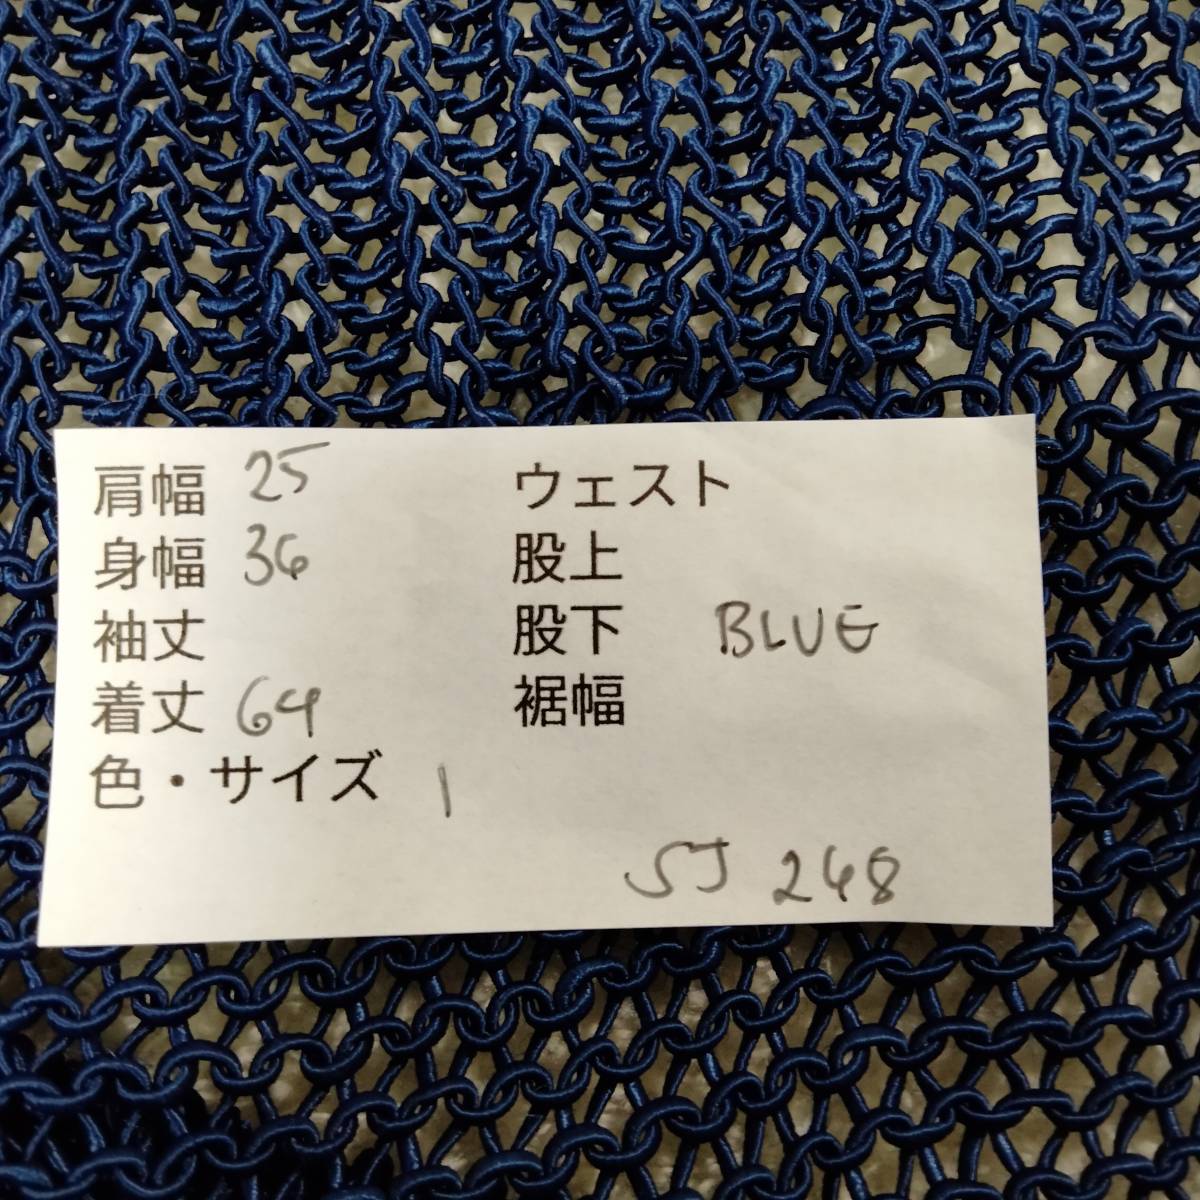 肩幅 25
身幅 36
袖丈
着丈 64
色・サイズ 1
ウェスト
股上
股下 BLUE
裾幅
SJ 248